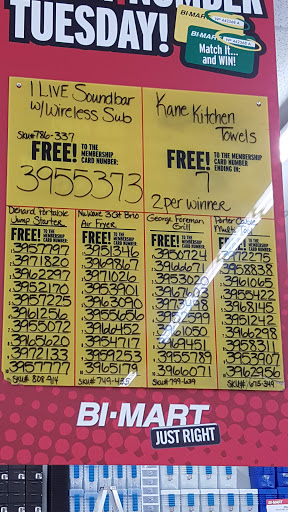 NUMBER
TUESDAY!
BI-MART
BI-MART
Match It...
and WIN!
I LIVE Soundbar
w/Wireless Sub
Sku#786-337
FREE! TO THE
MEMBERSHIP
CARD NUMBER:
3955373
Kane Kitchen
Towels
FREE! TO THE
MEMBERSHIP
CARD NUMBER
ENDING IN:
7
2 per winner
Diehard Portable
Jump Starter
FREE! TO THE
MEMBERSHIP
CARD NUMBER:
3957797
3971820
3962297
3952170
3957225
3961256
3955072
3965620
3972133
3957777
Sku# 808-914
NuWave 3Qt Brio
Air Fryer
FREE! TO THE
MEMBERSHIP
CARD NUMBER:
3951346
3969867
3953901
3963090
3955656
3966452
3954717
3959253
3965178
Sku# 749-435
George Foreman
Grill
FREE! TO THE
MEMBERSHIP
CARD NUMBER:
3950724
3966671
3953020
3961050
3969451
3955789
3966071
Sku# 799-639
Porter
FREE! TO THE
MEMBERSHIP
CARD NUMBER:
3972275
3958838
3961065
3955422
3968145
3966298
3958311
3953907
3962956
Sku# 673-349
BI-MART
JUST RIGHT